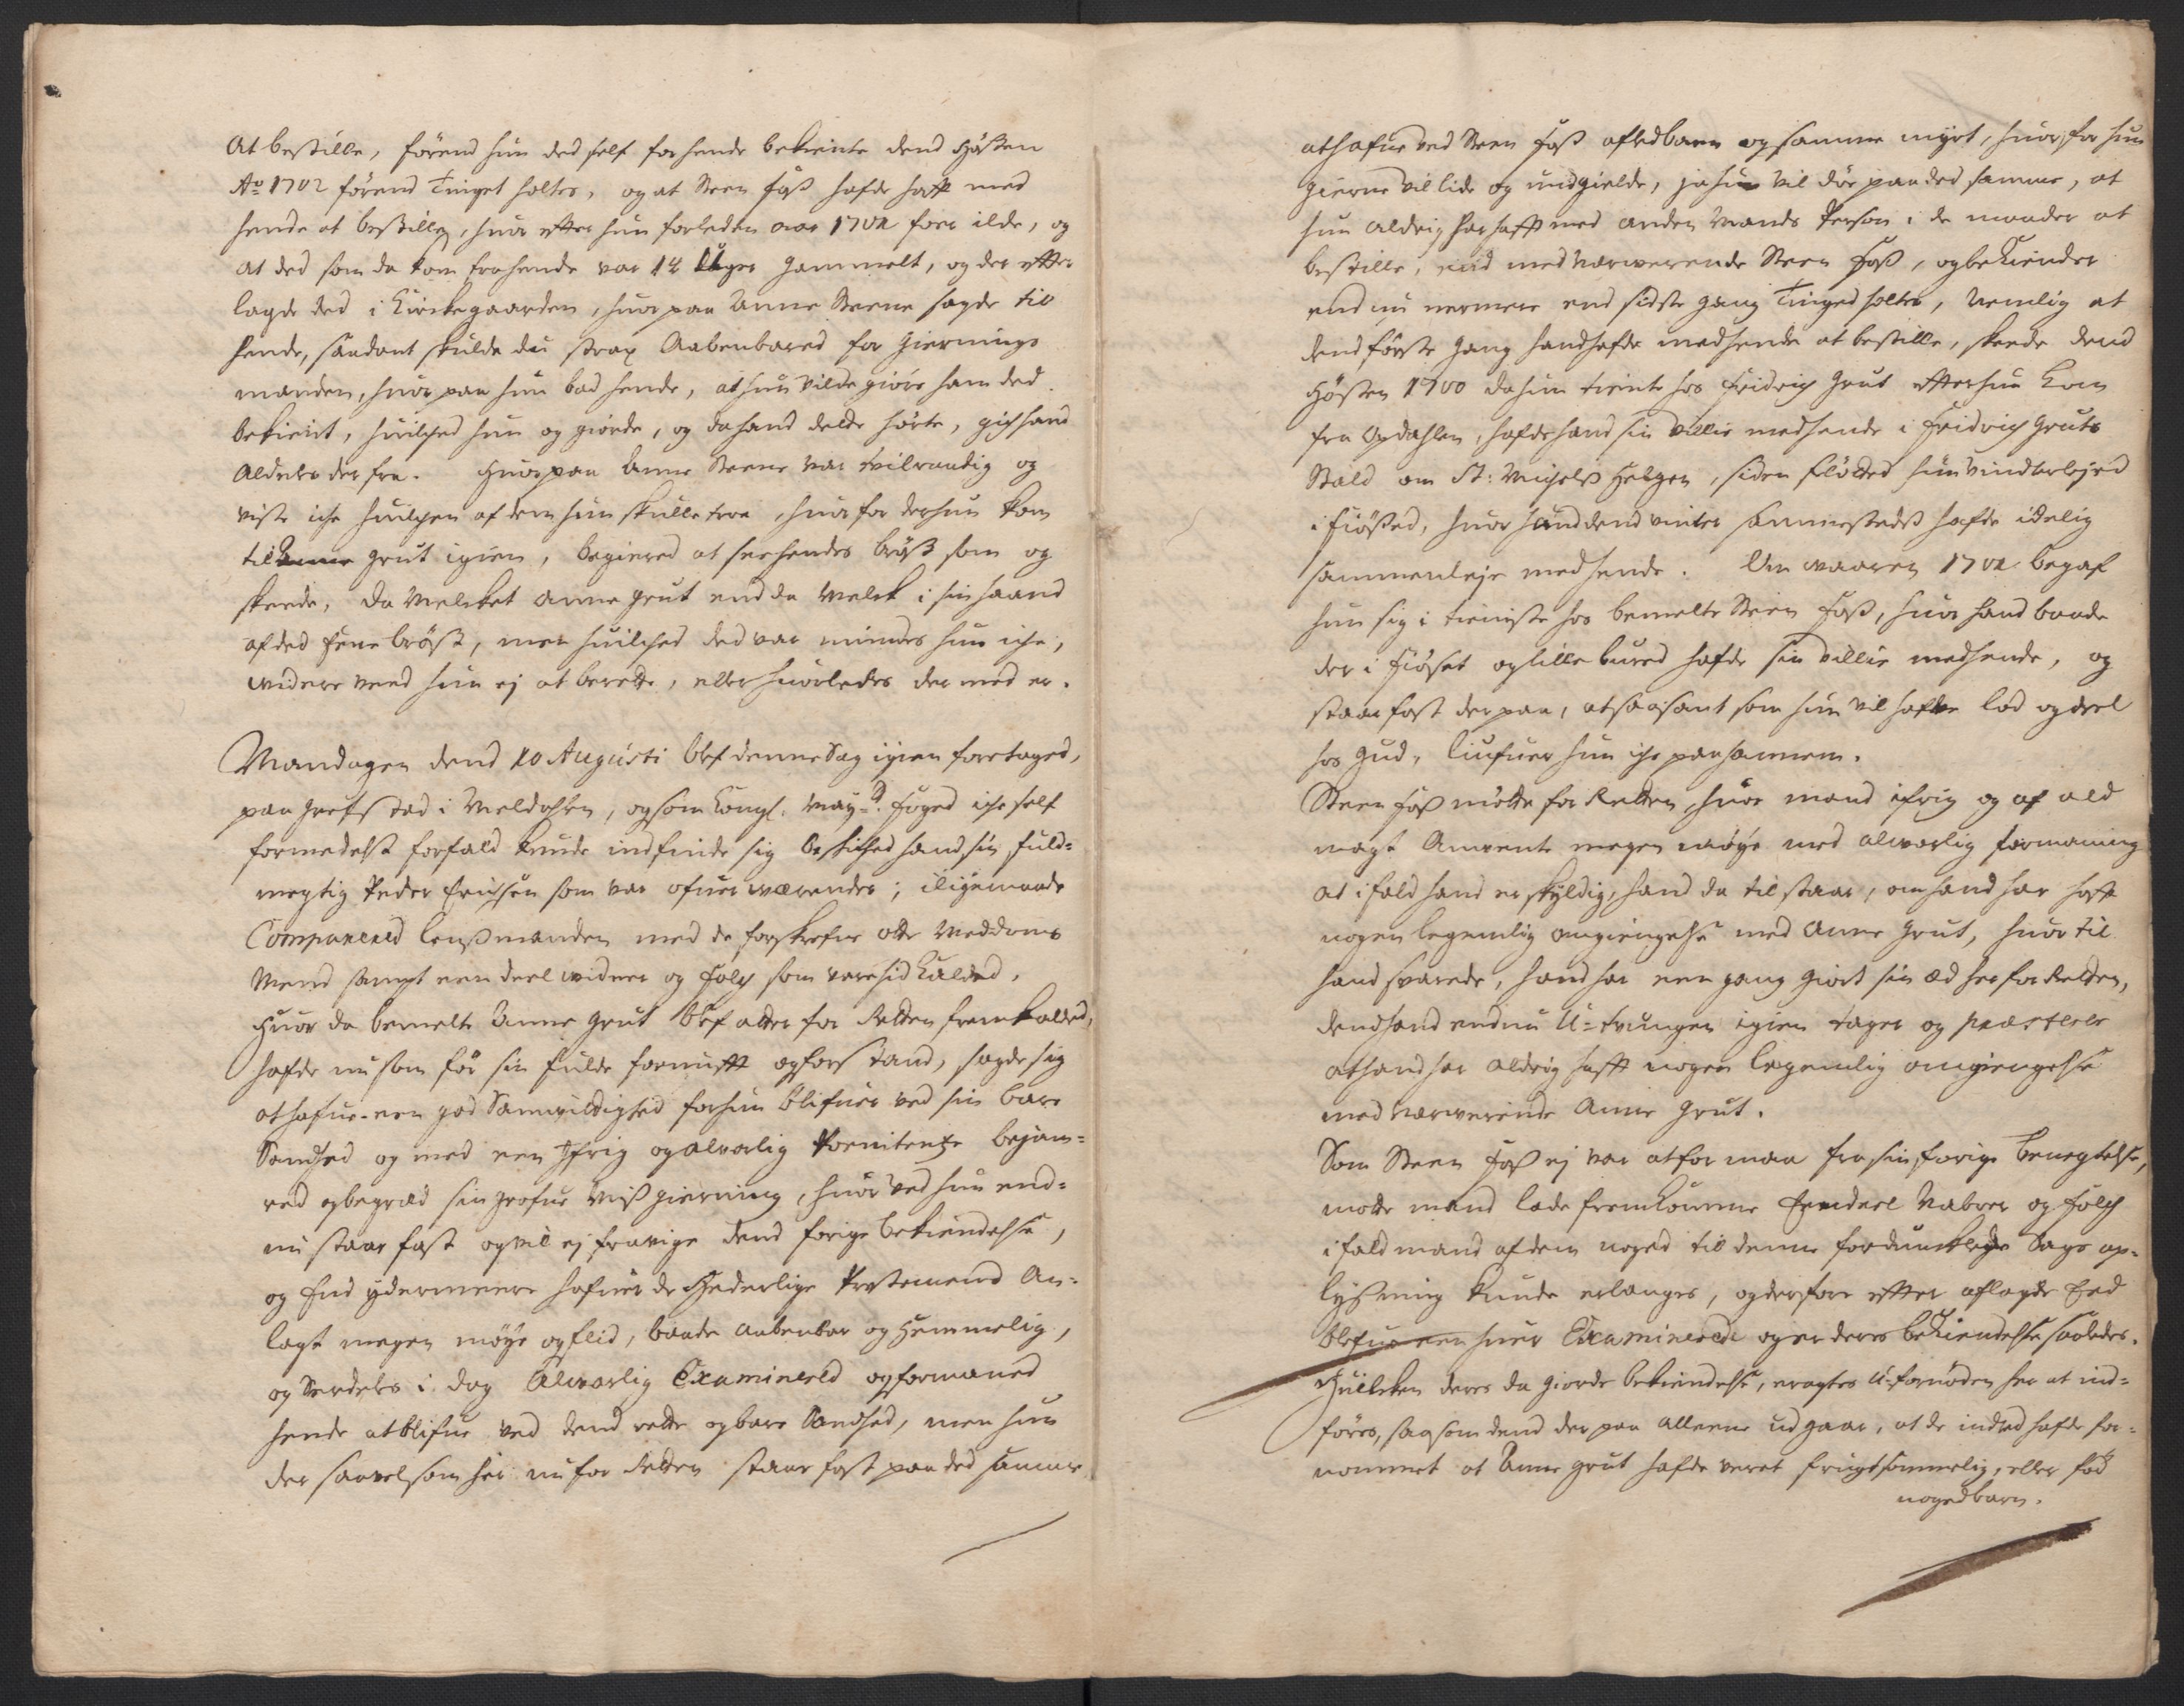 At bestille, førend hun ded self for hende bekiente dend Høsten
Ao 1702 førend Tinget holtes, og at Steen Foss hafde hafft med
hende at bestille, huor effter hun forleden aar 1702 foer ilde, og
at ded som da kom fra hende var 14 Uger gammelt, og der effter
lagde ded i Kirckegaarden, huor paa Anne Steene sagde til
hende, saadant skulde du strax Aabenbared for giernings
manden, huor paa hun bad hende, at hun vilde giøre ham ded
bekient, huilched hun og giorde, og da hand dette hørte, gich hand
aldeles der fra. Huor paa Anne Steene var tvilraadig og
viste iche huilchen af dem hun skulle troe, huor for der hun kom
til Anne Grut igien, begiered at see hendes bryst som og
skeede, da Melcket Anne Grut end da Melck i sin haand
af ded Eene bryst, men huilched ded var mindes hun iche,
widere weed hun ej at berette, eller huorledes der med er.
Mandagen dend 20 Augusti blef denne Sag igien foretaged,
paa Grefstad i Meldahlen, og som Kongl. May:ds foged iche self
formedelst forfald kunde indfinde sig beskiched hand sin fuld-
megtig Peder Erichsen som var ofuerwærendes; iligemaade
Comparered lensmanden med de forskrefne otte Meddoms
Mend sampt een deel widner og folch som vare hid kalded,
Huor da bemelte Anne Grut blef atter for Retten fremkalled,
hafde nu som før sin fulde fornufft og forstand, sagde sig
at hafue een god Samvittighed for hun blifuer ved sin bare
Sandhed og med een Ifrig og alvorlig Poenitentze bejam-
red og begræd sin grofue Missgierning, huor ved hun end-
nu staar fast og vil ej fravige dend forige bekiendelse,
og End ydermeere hafuer de Hæderlige Prestemænd An-
lagt megen møye og flid, baade aabenbar og Hemmelig,
og Serdeles i dag Alvorlig Examinered og formaned
hende at blifue ved dend rette og bare Sandhed, men hun
der saavelsom her nu for Retten staar fast paa ded samme
at hafue ved Steen Foss afled barn og samme myrt, huor for hun
gierne vil lide og undgielde, ja hun vil døe paa ded samme, at
hun aldrig har hafft med anden Mands Person i de maader at
bestille, uid med nærwerende Steen Foss, og bekiender
end nu nermere end sidste gang Tinged holtes, Nemlig at
dend første gang hand hafde med hende at bestille, skeede dend
Høsten 1700 da hun tiente hos Fridrich Grut effter hun kom
fra Opdahlen, hafde hand sin villie med hende i Fridrich Gruts
Stald om St: Michels Helgen, siden fløtted hun vinterlejed
i Fiøsed, huor hand dend vinter sammesteds hafde idelig
sammenleje med hende. Om vaaren 1701 begaf
hun sig i tieniste hos bemelte Steen Foss, huor hand baade
der i Fiøset og lille bured hafde sin villie med hende, og
staar fast der paa, at saa sant som hun vil hafue lod og deel
hos Gud, liufuer hun iche paa hannem.
Steen Foss møtte for Retten, huor mand ifrig og af ald
magt Anvente megen møye med alvorlig formaning
at i fald hand er skyldig, hand da tilstaar, om hand har hafft
nogen legemlig omgiengelse med Anne Grut, huor til
hand svarede, hand har een gang giort sin æd her for Retten,
dend hand endnu U-tvungen igien tager og præsterer
at hand har aldrig hafft nogen legemlig omgiengelse
med nærwerende Anne Grut.
Som Steen Foss ej var at formaa fra sin forige benegtelse,
motte mand lade fremkomme Eendeel Naboer og folch
i fald mand af dem noged til denne fordunklede Sags op-
lysning kunde erlanges, og derfore effter aflagde Eed
blefue een huer Examinerede og er deres bekiendelse saaledes.
Huilcken deres da giorde bekiendelse, eragtes U-fornøden her at ind-
føres, saasom dend der paa alleene udgaar, at de intted hafde for-
nommet at Anne Grut hafde veret frugtsommelig, eller fød
noged barn.